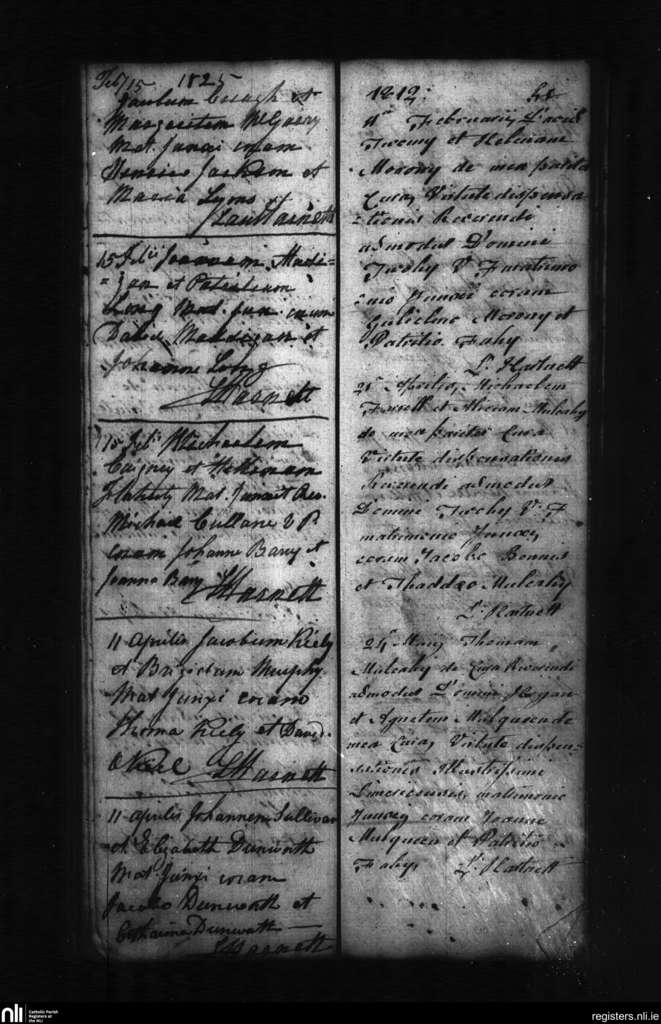 Feb 15 1825
Jacobum Creagh et
Margaritam McGuiry
Mat. junxi coram
Henrico Jackson et
Maria Lyons
Hartnett
15 Feb Joannem Madi-
-gan et Patritiam
Long Mat. jun. coram
David Maddigan et
Johanne Long
LHartnett
15 Feb Michaelem
et Hellenam
Flaherty Mat. junxit Rev.
Michael Cullane P P
coram Johanne Barry et
Joanna Barry LHartnett
11 Aprilis Jacobum Kiely
et Brigidam Murphy
Mat junxi coram
Thoma Kiely et David
O Neil LHartnett
11 Aprilis Johannem Sullivan
et Elizabeth Dunworth
Mat. junxi coram
Jacobo Dunworth et
Catharina Dunworth
LHartnett
1812:
Februarii
et Helenam
Morony de mea pariter
Cura, Virtute dispensa
-tionis Reverendi
admodus Domini
Tuohy V F matrimo
-nio junxi coram
Gulielmo Morony et
Patritio Fahy
L. Hartnett
21 Aprilis, Michaelem
Farrell et Miriam Mulcahy
de mea pariter Cura
Virtute dispensationis
Reverendi admodus
Domini Tuohy V. F
matrimonio junxi,
coram Jacobo Bonnet
et Thaddeo Mulcahy
L. Hartnett
24 Maij Thomam
Mulcahy de Cura Reverendi
admodus Domini Hogan
et Agnetem Mulqueen de
mea Cura, Virtute dispen-
-sationis Illustrissimi
Limericensis, matrimonio
junxi coram Joanne
Mulqueen et Patritio
Fahy, L. Hartnett
nli Catholic Parish
Registers at
the NLI
registers.nli.ie